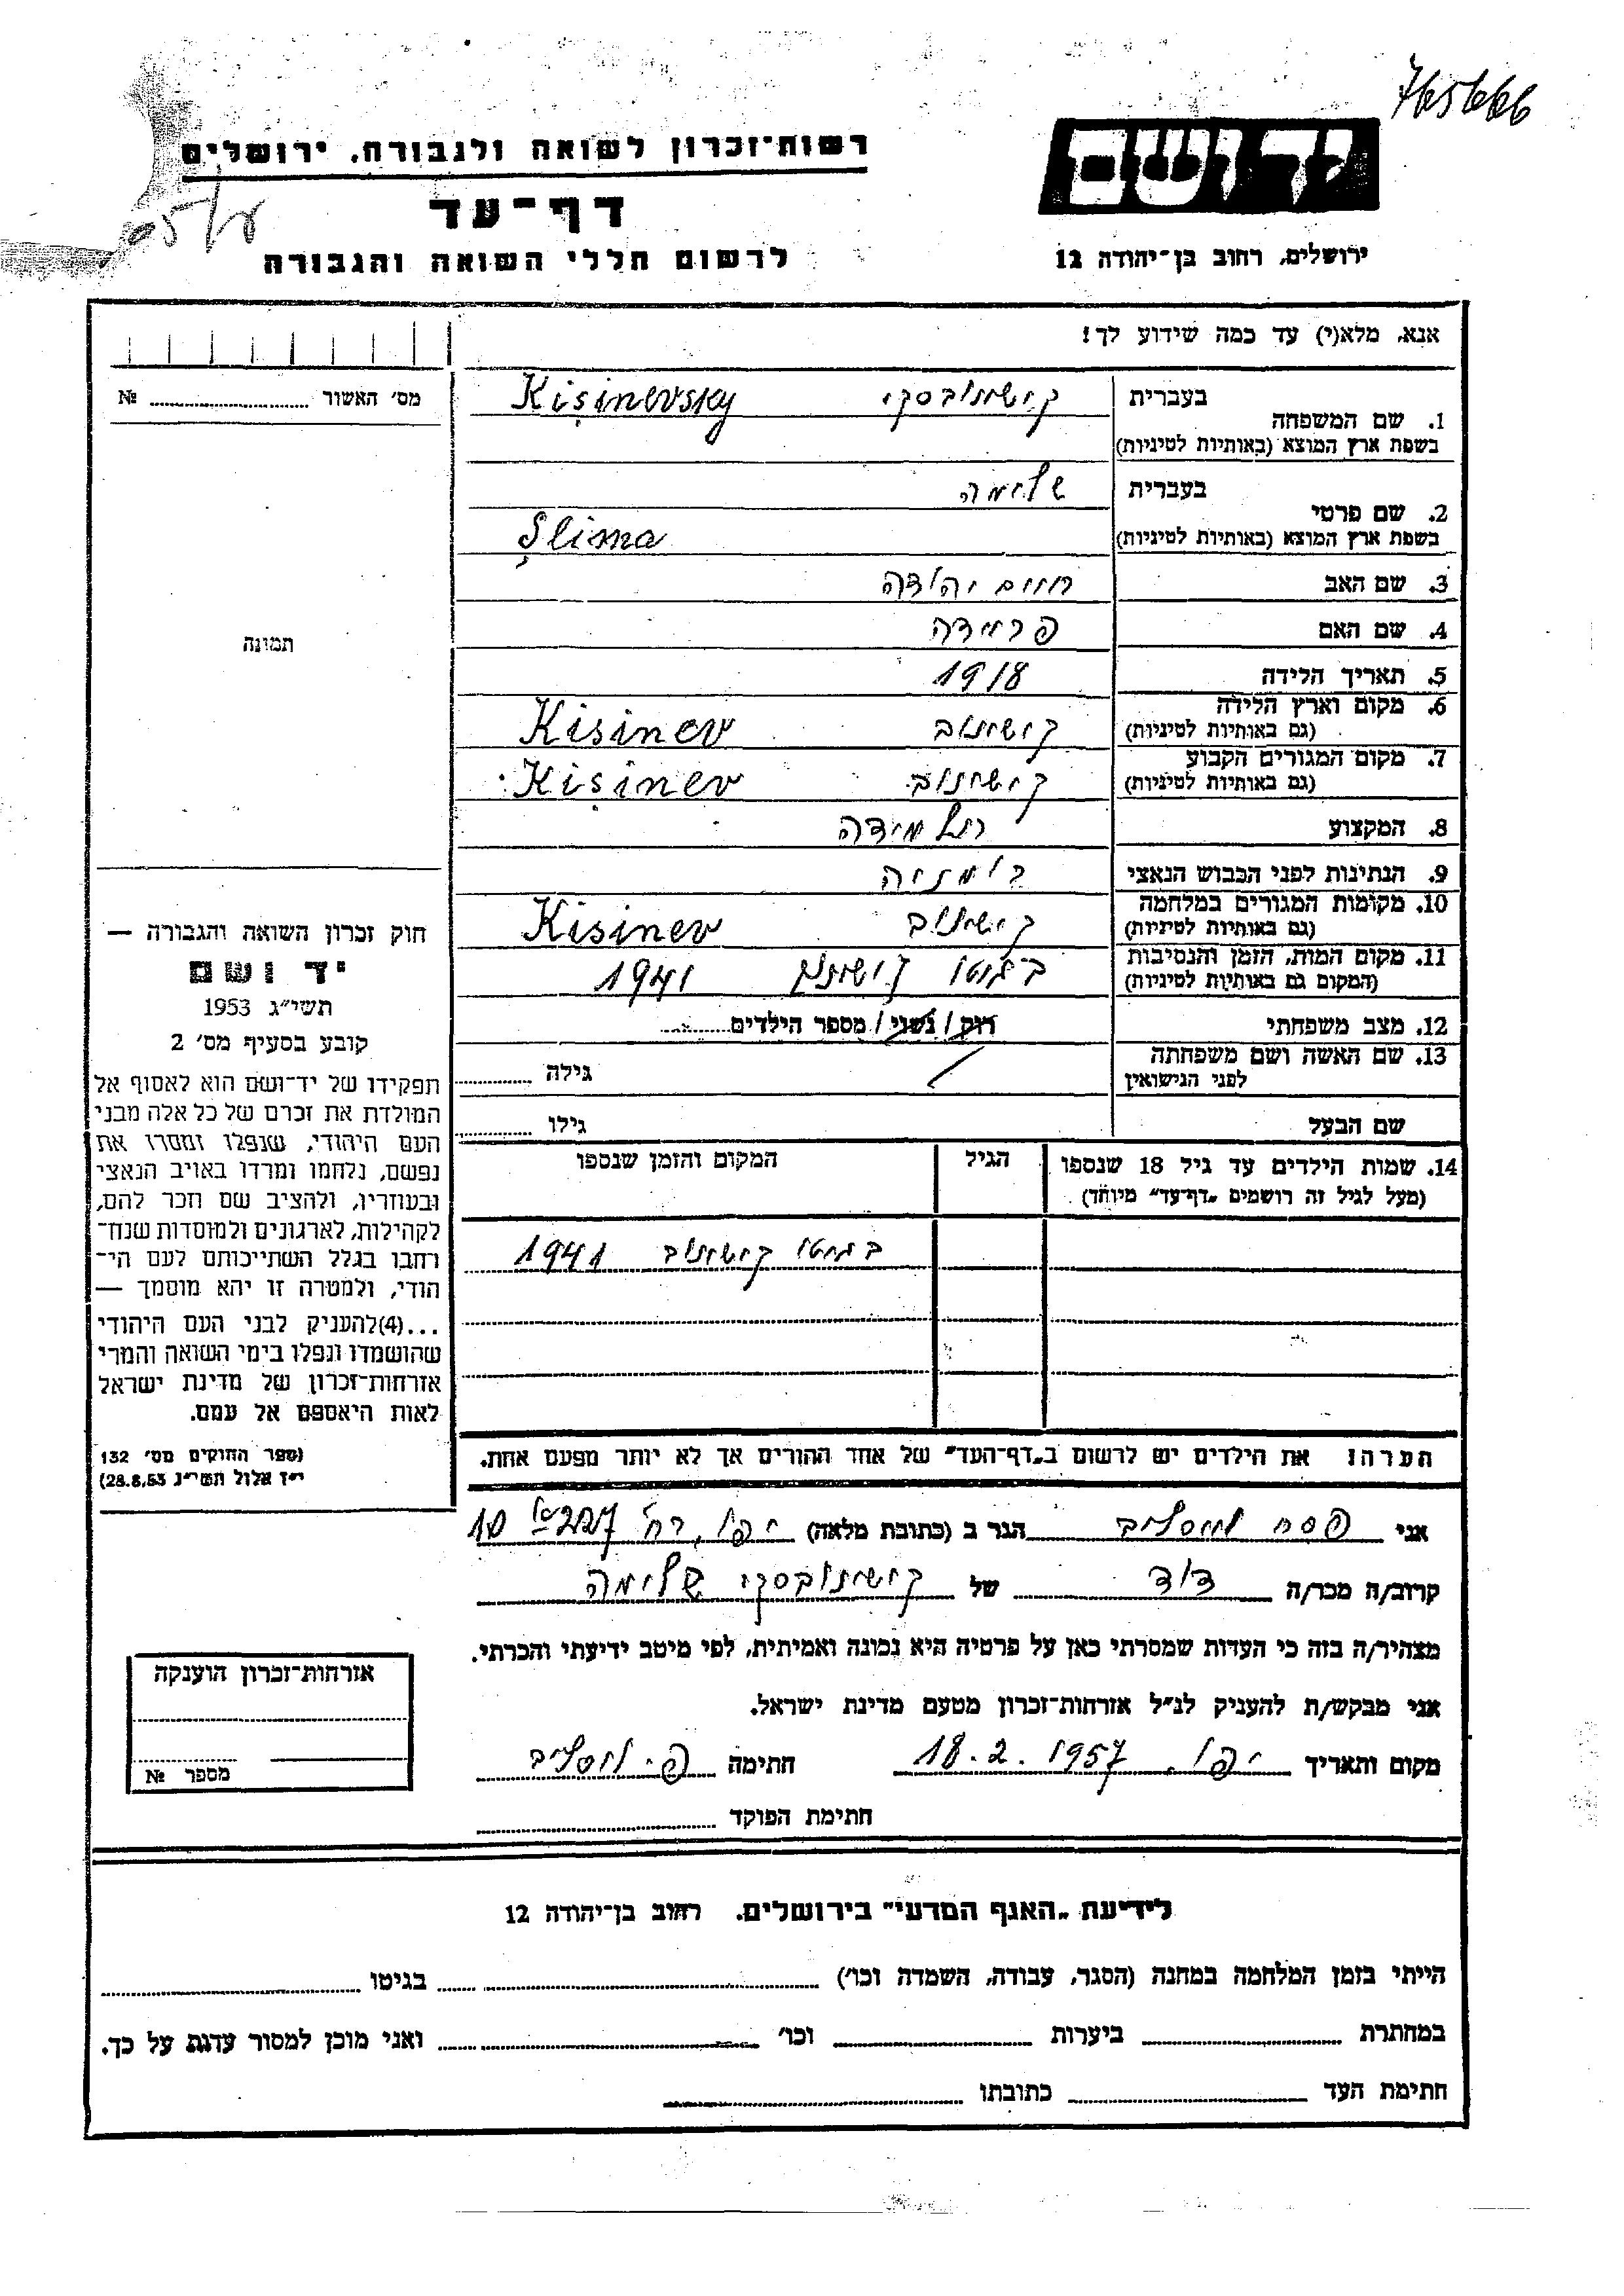 765666
רשות־זכרון לשואה ולגבורה, ירושלים
יד ושם
דף־עד
לרשום חללי השואה והגבורה
ירושלים, רחוב בן־יהודה 12
אנא, מלא(י) עד כמה שידוע לך!
מס׳ האשור № 
1. שם המשפחה בעברית קישינובסקי Kişinevsky
בשפת ארץ המוצא (באותיות לטיניות)
2. שם פרטי בעברית שלימה
בשפת ארץ המוצא (באותיות לטיניות) Şlima
3. שם האב חיים יהודה
4. שם האם פריידה
5. תאריך הלידה 1918
6. מקום וארץ הלידה (גם באותיות לטיניות) קישינוב Kisinev
7. מקום המגורים הקבוע (גם באותיות לטיניות) קישינוב Kişinev
8. המקצוע תלמידה
9. הנתינות לפני הכבוש הנאצי רומניה
10. מקומות המגורים במלחמה (גם באותיות לטיניות) קישינוב Kisinev
11. מקום המות, הזמן והנסיבות (המקום גם באותיות לטיניות) בגטו קישינוב 1941
12. מצב משפחתי רוק / נשוי / מספר הילדים
13. שם האשה ושם משפחתה לפני הנישואין גילה
שם הבעל גילו
14. שמות הילדים עד גיל 18 שנספו הגיל המקום והזמן שנספו
(מעל לגיל זה רושמים „דף־עד״ מיוחד)
בגיטו קישינוב 1941
הערה: את הילדים יש לרשום ב„דף־העד״ של אחד ההורים אך לא יותר מפעם אחת.
תמונה
חוק זכרון השואה והגבורה —
יד ושם
תשי״ג 1953
קובע בסעיף מס׳ 2
תפקידו של יד־ושם הוא לאסוף אל
המולדת את זכרם של כל אלה מבני
העם היהודי, שנפלו ומסרו את
נפשם, נלחמו ומרדו באויב הנאצי
ובעוזריו, ולהציב שם וזכר להם,
לקהילות, לארגונים ולמוסדות שנח־
רבו בגלל השתייכותם לעם הי־
הודי, ולמטרה זו יהא מוסמך —
...(4)להעניק לבני העם היהודי
שהושמדו ונפלו בימי השואה והמרי
אזרחות־זכרון של מדינת ישראל
לאות היאספם אל עמם.
(ספר החוקים מס׳ 132
י״ז אלול תשי״ג 28.8.53)
אני פסח הגר ב (כתובת מלאה) יפו, רח׳ 10
קרוב/ה מכר/ה דוד של קישינובסקי שלימה
מצהיר/ה בזה כי העדות שמסרתי כאן על פרטיה היא נכונה ואמיתית, לפי מיטב ידיעתי והכרתי.
אני מבקש/ת להעניק לנ״ל אזרחות־זכרון מטעם מדינת ישראל.
מקום ותאריך יפו, 18.2.1957 חתימה פ.
חתימת הפוקד
אזרחות־זכרון הוענקה
מספר №
לידיעת „האגף המדעי״ בירושלים, רחוב בן־יהודה 12
הייתי בזמן המלחמה במחנה (הסגר, עבודה, השמדה וכו׳) בגיטו
במחתרת ביערות וכו׳ ואני מוכן למסור עדות על כך.
חתימת העד כתובתו